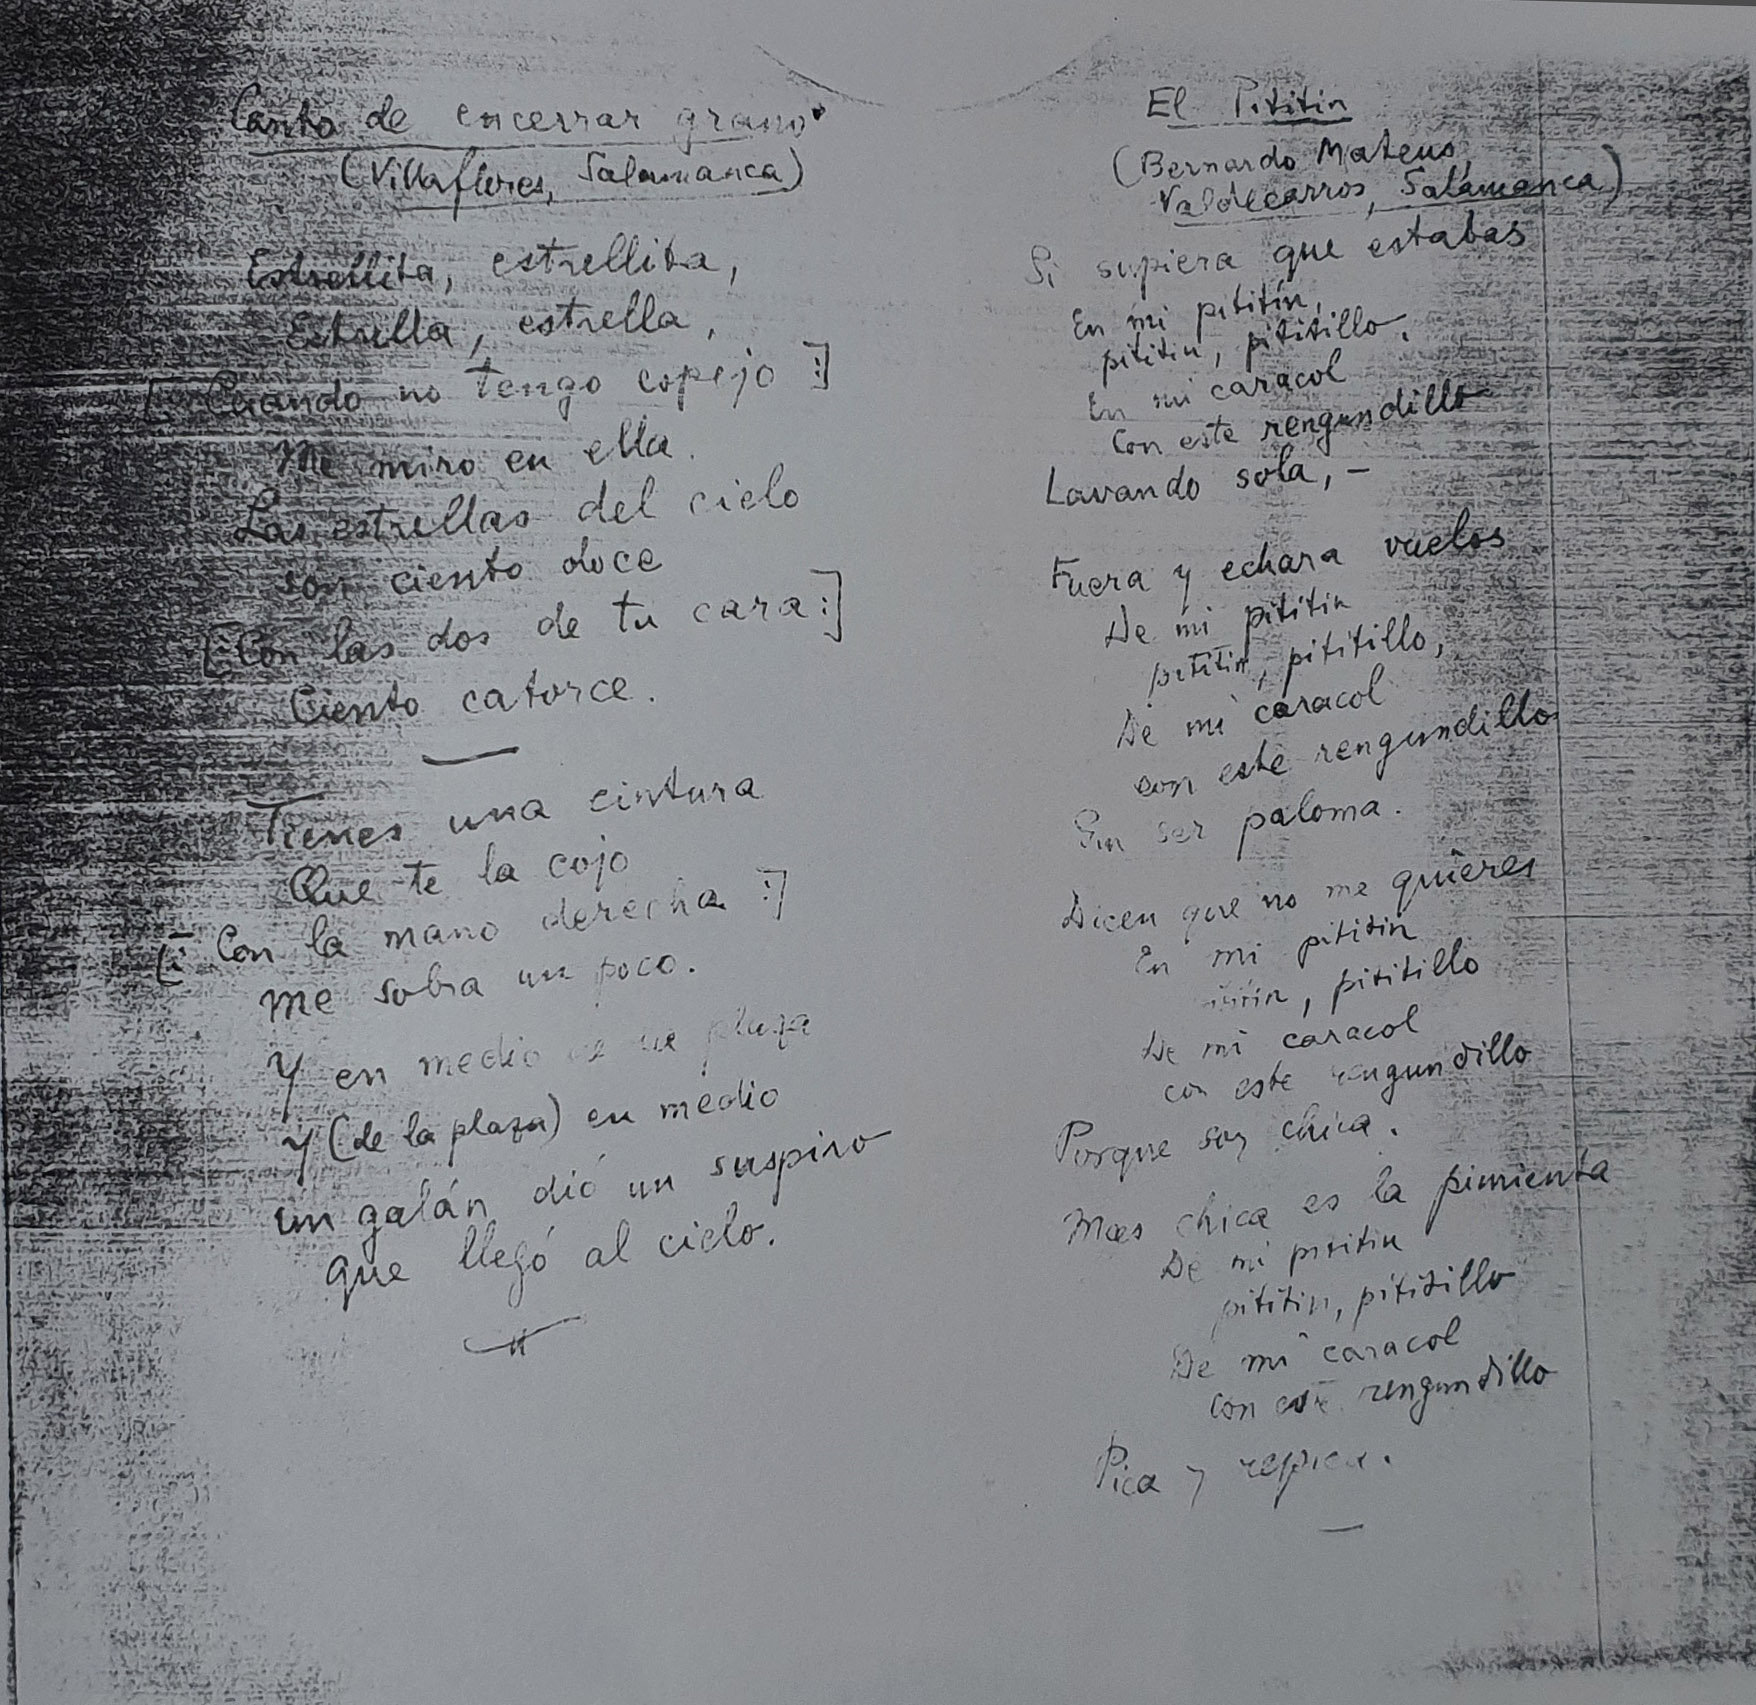 Canto de encerrar grano
(Villaflores, Salamanca)
Estrellita, estrellita,
Estrella, estrella,
[: Cuando no tengo copejo :]
Me miro en ella.
Las estrellas del cielo
son ciento doce
[: Con las dos de tu cara :]
Ciento catorce.
Tienes una cintura
Que te la cojo
[: Con la mano derecha :]
Me sobra un poco.
Y en medio plaza
Y (de la plaza) en medio
un galán dió un suspiro
que llegó al cielo.
El Pititin
(Bernardo Mateus,
Valdecarros, Salamanca)
Si supiera que estabas
En mi pititín,
pititin, pititillo,
En mi caracol
Con este rengundillo
Lavando sola, -
Fuera y echara vuelos
De mi pititin
pititin, pititillo,
De mi caracol
con este rengundillo
Sin ser paloma.
Dicen que no me quieres
En mi pititin
pititin, pititillo
De mi caracol
con este rengundillo
Porque soy chica.
Mas chica es la pimienta
De mi pititin
pititin, pititillo
De mi caracol
con este rengundillo
Pica y repica.